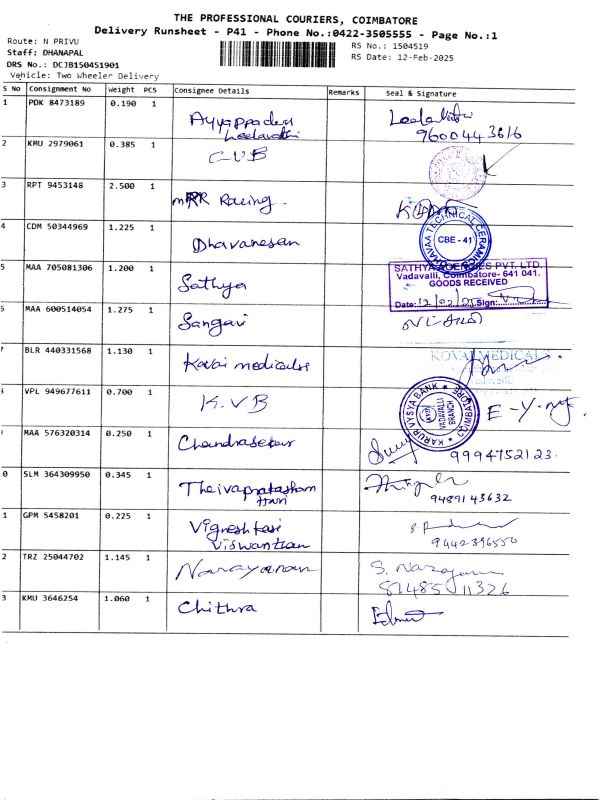 THE PROFESSIONAL COURIERS, COIMBATORE
Delivery Runsheet - P41 - Phone No.:0422-3505555 - Page No.:1
Route: N PRIVU
RS No.: 1504519
Staff: DHANAPAL
RS Date: 12-Feb-2025
DRS No.: DCJB150451901
Vehicle: Two Wheeler Delivery
S No Consignment No Weight PCS Consignee Details Remarks Seal & Signature
1 PDK 8473189 0.190 1
Leelavathi 9600443616
2 KMU 2979061 0.385 1 CUB
3 RPT 9453148 2.500 1 MRR Racing.
4 CDM 50344969 1.225 1 Dhavanesan
TECHNICAL CERAMIC
CBE - 41
5 MAA 705081306 1.200 1 Sathya
SATHYA AGENCIES PVT. LTD.
Vadavalli, Coimbatore- 641 041.
GOODS RECEIVED
Date: 12/02/25 Sign:
6 MAA 600514054 1.275 1 Sangavi
7 BLR 440331568 1.130 1 Kovai medicals
KOVAI MEDICAL
8 VPL 949677611 0.700 1 K.V.B
KARUR VYSYA BANK
VADAVALLI
BRANCH
COIMBATORE
MAA 576320314 0.250 1 Chandrasekar
9994752123.
0 SLM 364309950 0.345 1
Hari 9489143632
1 GPM 5458201 0.225 1
Viswanthan 9442396550
2 TRZ 25044702 1.145 1 Narayanan S. Narayanan
81485 11326
3 KMU 3646254 1.060 1 Chithra